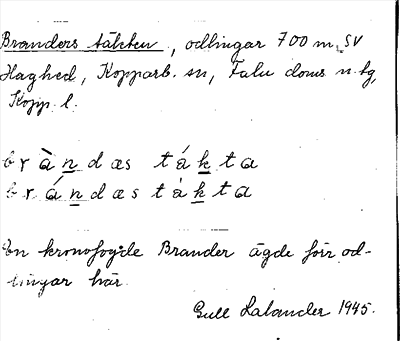 Branders täkten, odlingar 700 m. SV
Haghed, Kopparb. sn, Falu doms.n.tg,
Kopp. l.
brànd æs tákta
brándæs tàkta
En kronofogde Brander ägde förr od-
lingar här.
Gull Lalander 1945.